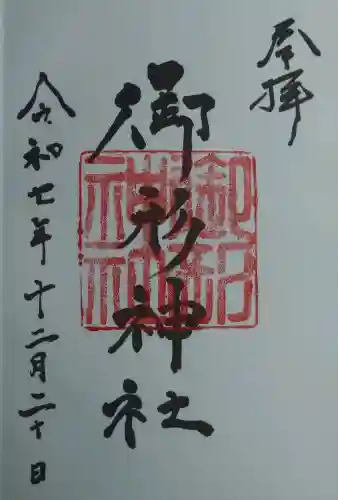 奉拝
御形神社
令和七年十二月二十日